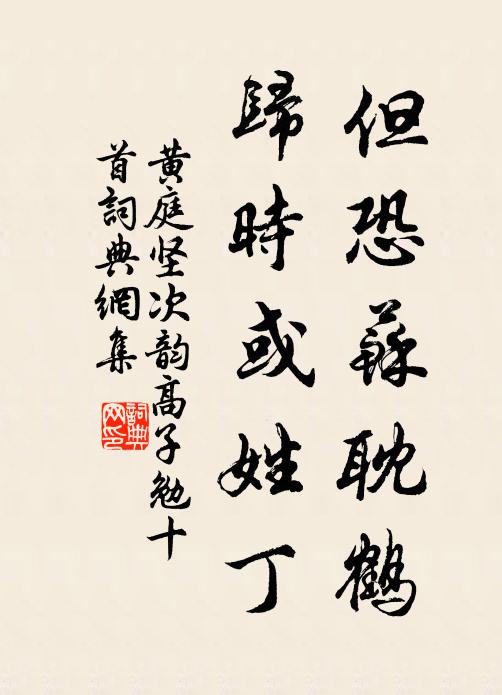 但恐蘇耽鶴
歸時或姓丁
黄庭坚次韵高子勉十
首詞典網集
詞典
网印